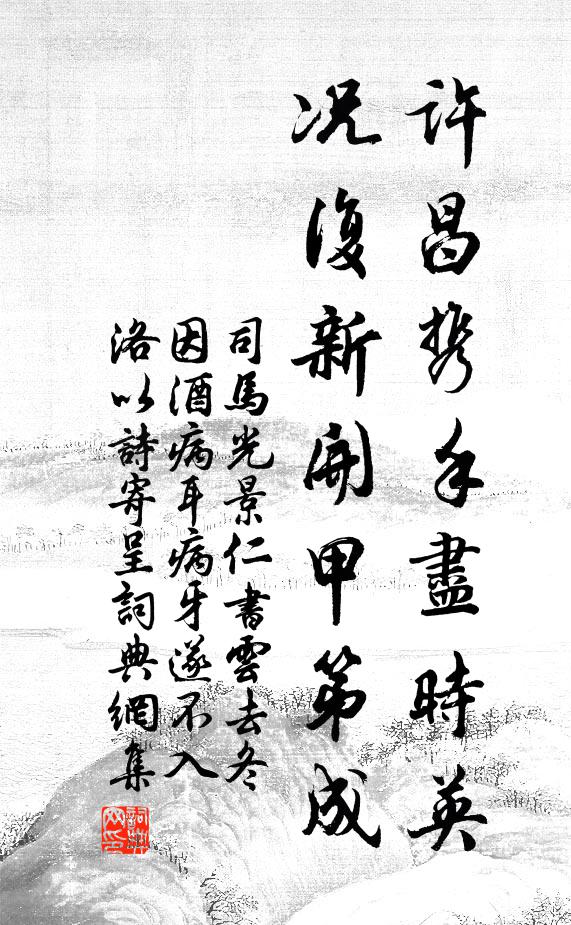 许昌携手盡時英
况復新開甲第成
司馬光景仁書雲去冬
因酒病耳病牙遂不入
洛以詩寄呈詞典網集
詞典网印